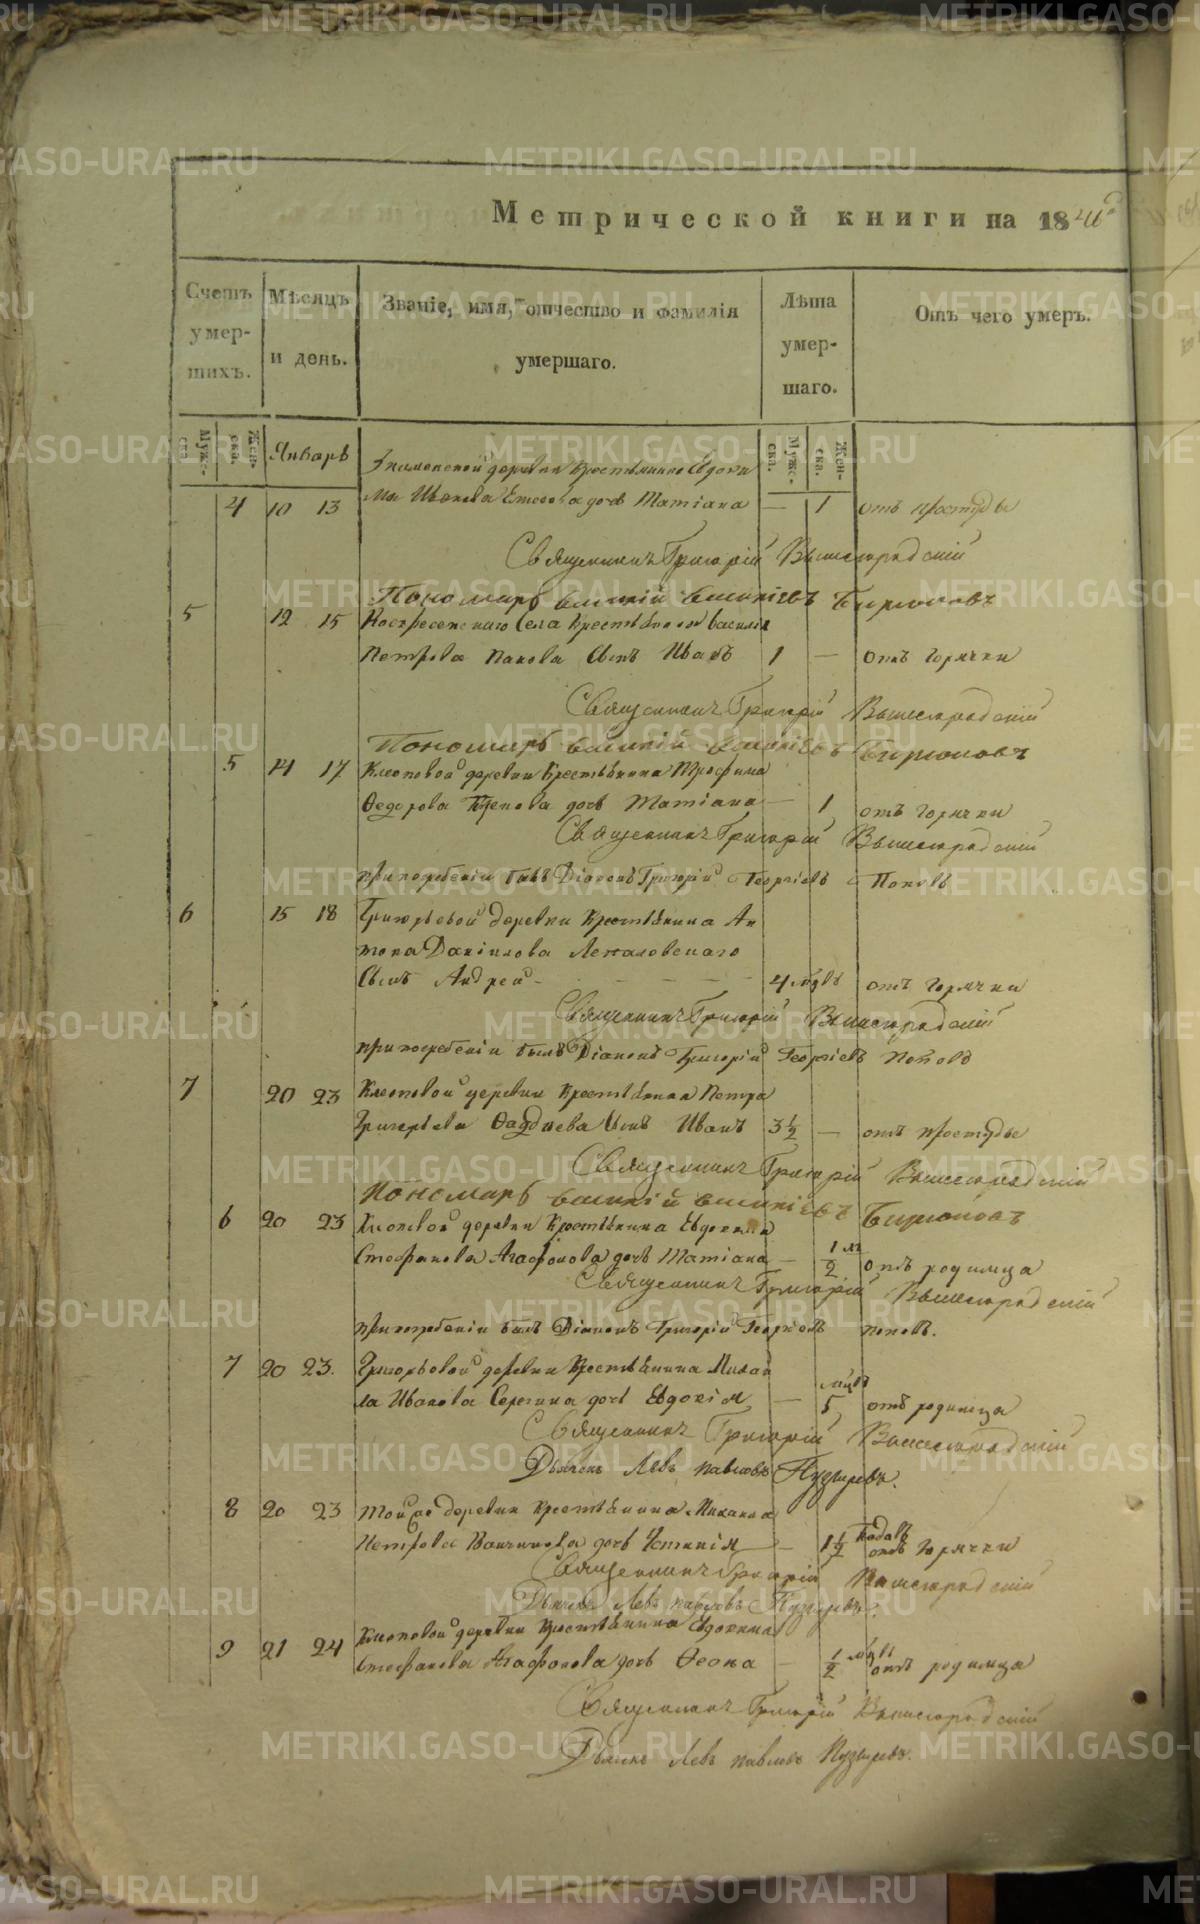 Метрической книги на 184
Счетъ умер- шихъ.
Мѣсяцъ и день.
Званіе, имя, отчество и фамилія умершаго.
Лѣта умер- шаго.
Отъ чего умеръ.
Муж- ска. Жен- ска. Январь Муж- ска. Жен- ска.
деревни Крестьянина Евдоки
4 10 13 ма Иванова дочь Татіана — 1 отъ простуды
Священникъ Григорій Вышегородскій
Пономарь Василій Василіевъ Бирюковъ
5 12 15 Воскресенскаго Села Крестьянина Василія
Петрова Панова Сынъ Иванъ 1 — отъ горячки
Священникъ Григорій Вышегородскій
Пономарь Василій Василіевъ Бирюковъ
5 14 17 Клеповой деревни Крестьянина Трофима
Федорова дочь Татіана — 1 отъ горячки
Священникъ Григорій Вышегородскій
при погребеніи былъ Діаконъ Григорій Георгіевъ Поповъ
6 15 18 Григорьевой деревни Крестьянина Ан
тона Данилова
Сынъ Андрей — 4 мѣс отъ горячки
Священникъ Григорій Вышегородскій
при погребеніи былъ Діаконъ Григорій Георгіевъ Поповъ
7 20 23 Клеповой деревни Крестьянина Петра
Григорьева Фаддѣева Сынъ Иванъ 3 1/2 — отъ простуды
Священникъ Григорій Вышегородскій
Пономарь Василій Василіевъ Бирюковъ
6 20 23 Клеповой деревни Крестьянина Евдокима
Стефанова Агафонова дочь Татіана — 1/2 отъ родимца
Священникъ Григорій Вышегородскій
при погребеніи былъ Діаконъ Григорій Георгіевъ Поповъ.
7 20 23. Григорьевой деревни Крестьянина Михай
ла Иванова Серегина дочь Евдокія — 5 отъ родимца
Священникъ Григорій Вышегородскій
Дьячекъ Левъ Павловъ Пузыревъ.
8 20 23 Той же деревни Крестьянина
Петрова дочь — 1 1/2 отъ горячки
Священникъ Григорій Вышегородскій
Дьячекъ Левъ Павловъ Пузыревъ.
9 21 24 Клеповой деревни Крестьянина Евдокима
Стефанова Агафонова дочь Феона — 1/2 отъ родимца
Священникъ Григорій Вышегородскій
Дьячекъ Левъ Павловъ Пузыревъ.
METRIKI.GASO-URAL.RU